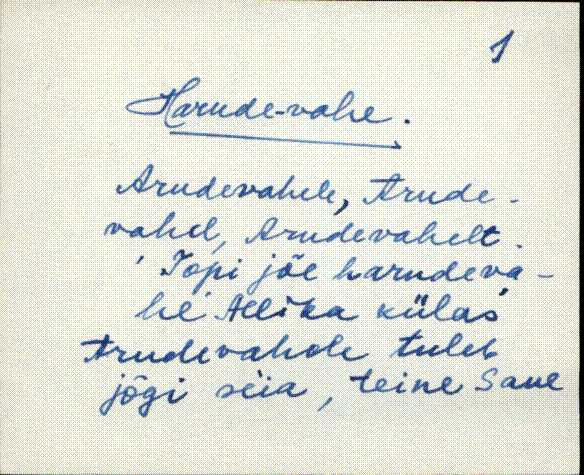 1
Harude-vahe.
Arudevahele, Arude-
vahel, Arudevahelt.
Topi jõe harudeva-
he Allika külas
Arudevahele tuleb
jõgi seia, teine Saue